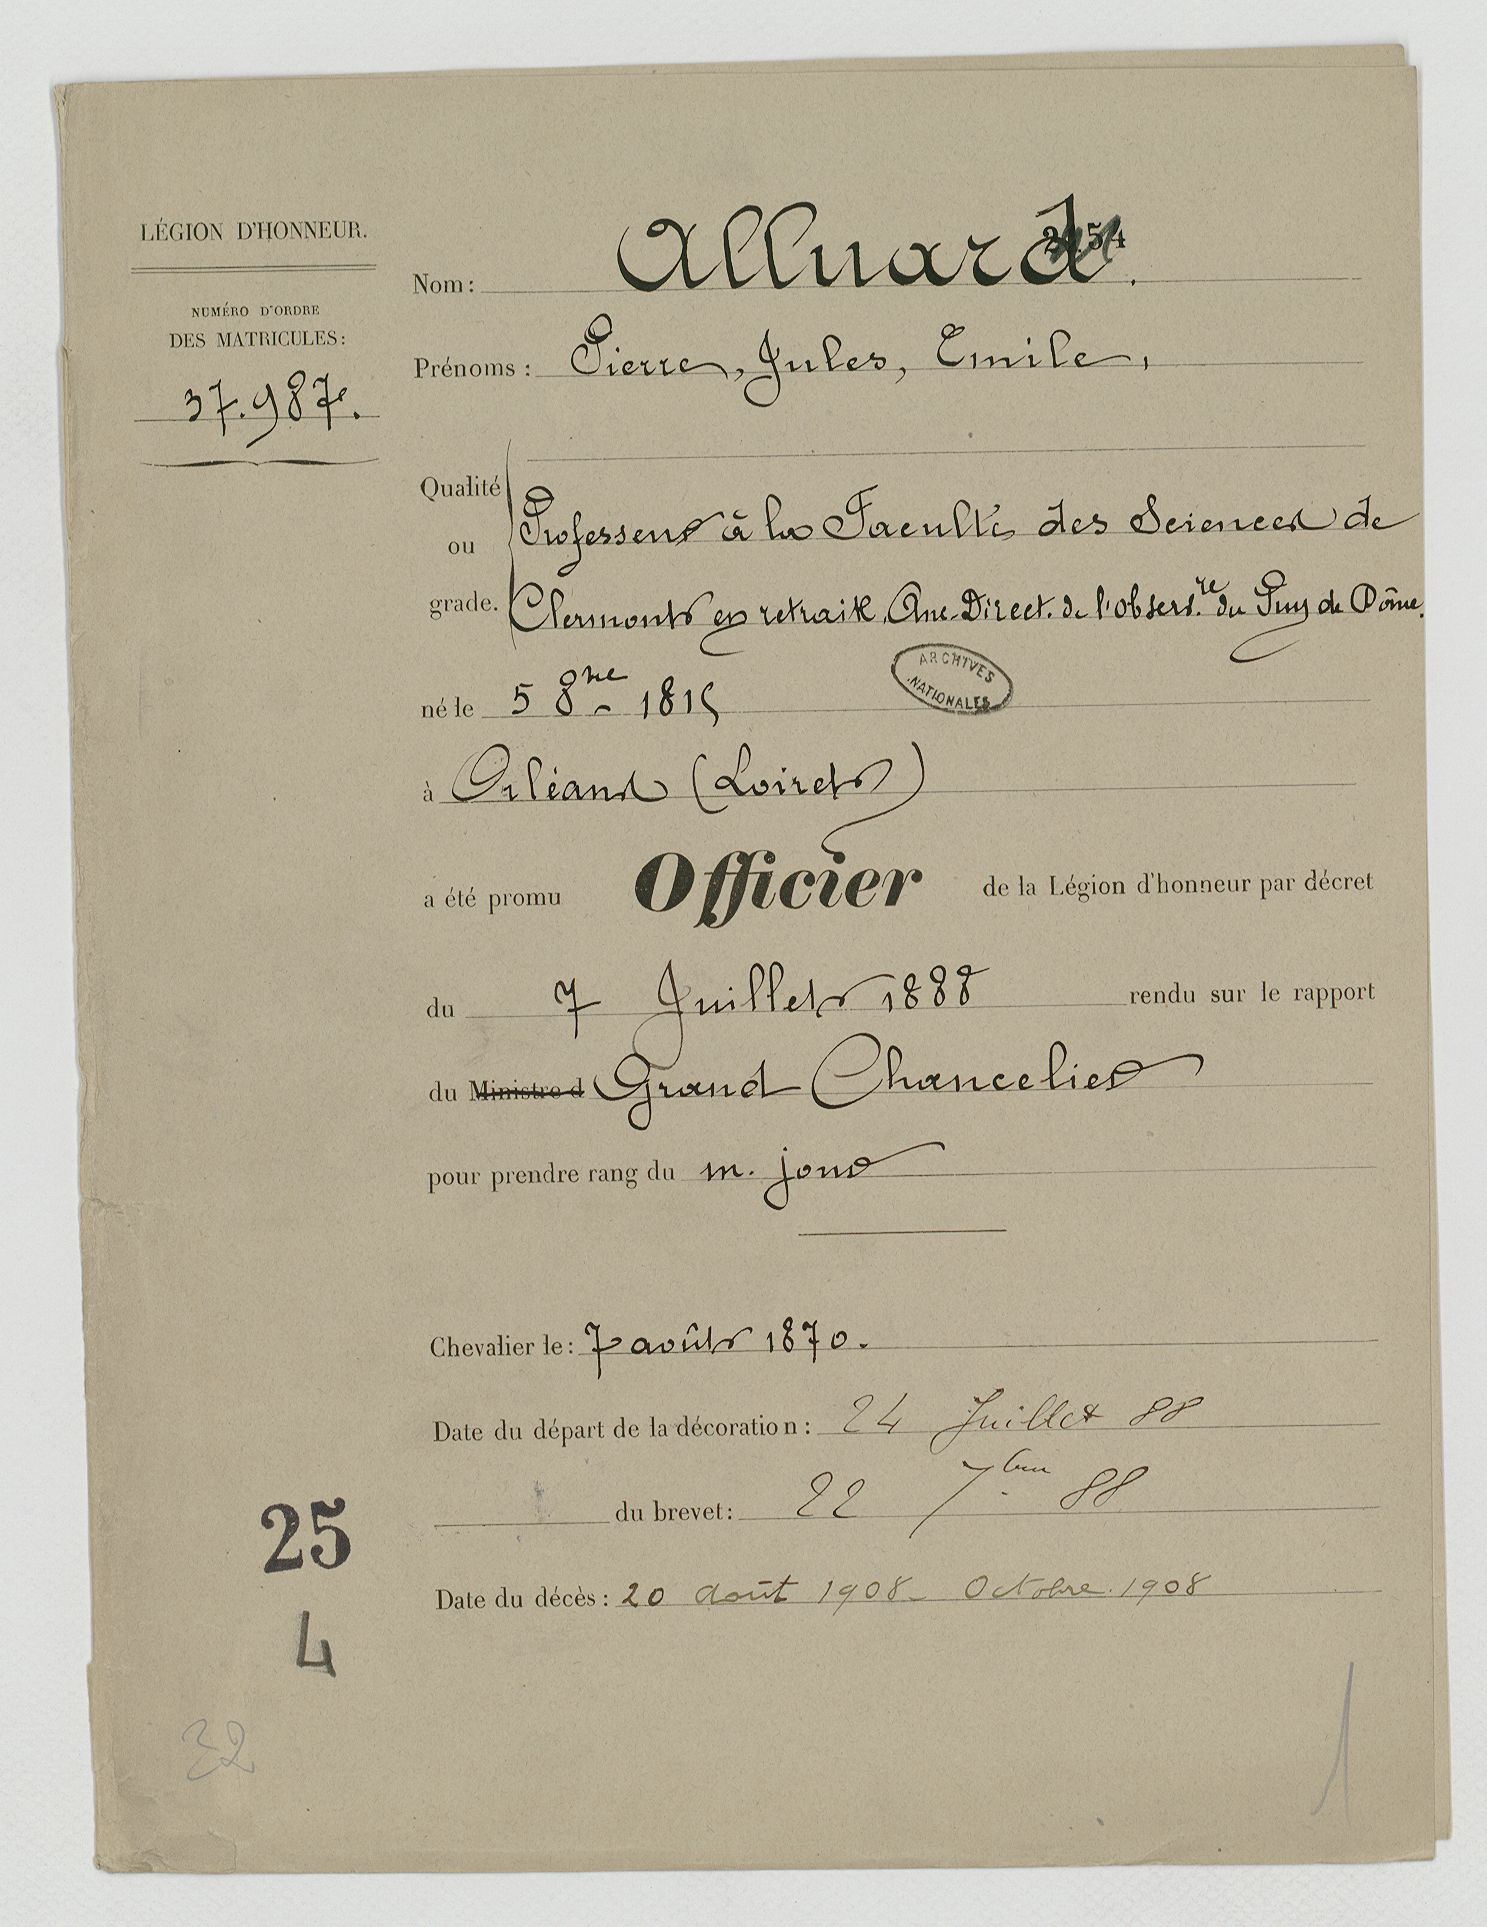 LÉGION D'HONNEUR.
NUMÉRO D'ORDRE
DES MATRICULES:
37.987.
Nom: Alluard.
Prénoms: Pierre, Jules, Emile,
Qualité ou grade. Professeur à la Faculté des Sciences de
Clermont en retraite, Anc. Direct. de l'observ.re du Puy de Dôme.
né le 5 8bre 1815
ARCHIVES NATIONALES
à Orléans (Loiret)
a été promu Officier de la Légion d'honneur par décret
du 7 Juillet 1888 rendu sur le rapport
du Ministre d Grand Chancelier
pour prendre rang du m. jour
Chevalier le: 7 août 1870.
Date du départ de la décoration: 24 Juillet 88
du brevet: 22 7bre 88
Date du décès: 20 août 1908 - Octobre 1908
25
4
32
1